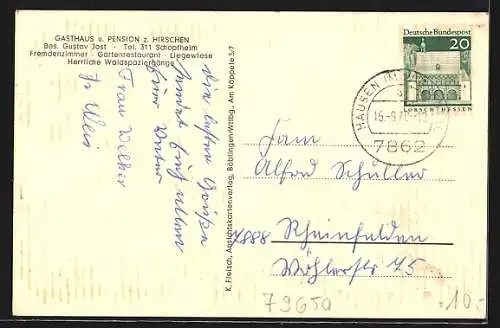 GASTHAUS u. PENSION z. HIRSCHEN
Bes. Gustav Jost - Tel. 311 Schopfheim
Fremdenzimmer - Gartenrestaurant - Liegewiese
Herrliche Waldspaziergänge
Die besten Grüße
sendet Euch allen
Eure
Frau Welker
K. Fleisch, Ansichtskartenverlag, Böblingen-Wttbg., Am Käppele 5/7
Deutsche Bundespost
20
LORSCH/HESSEN
HAUSEN IM
15.-9.
7862
Fam
Alfred Schuller
7888
Rheinfelden
Wöhlerstr 75
79650
10.-